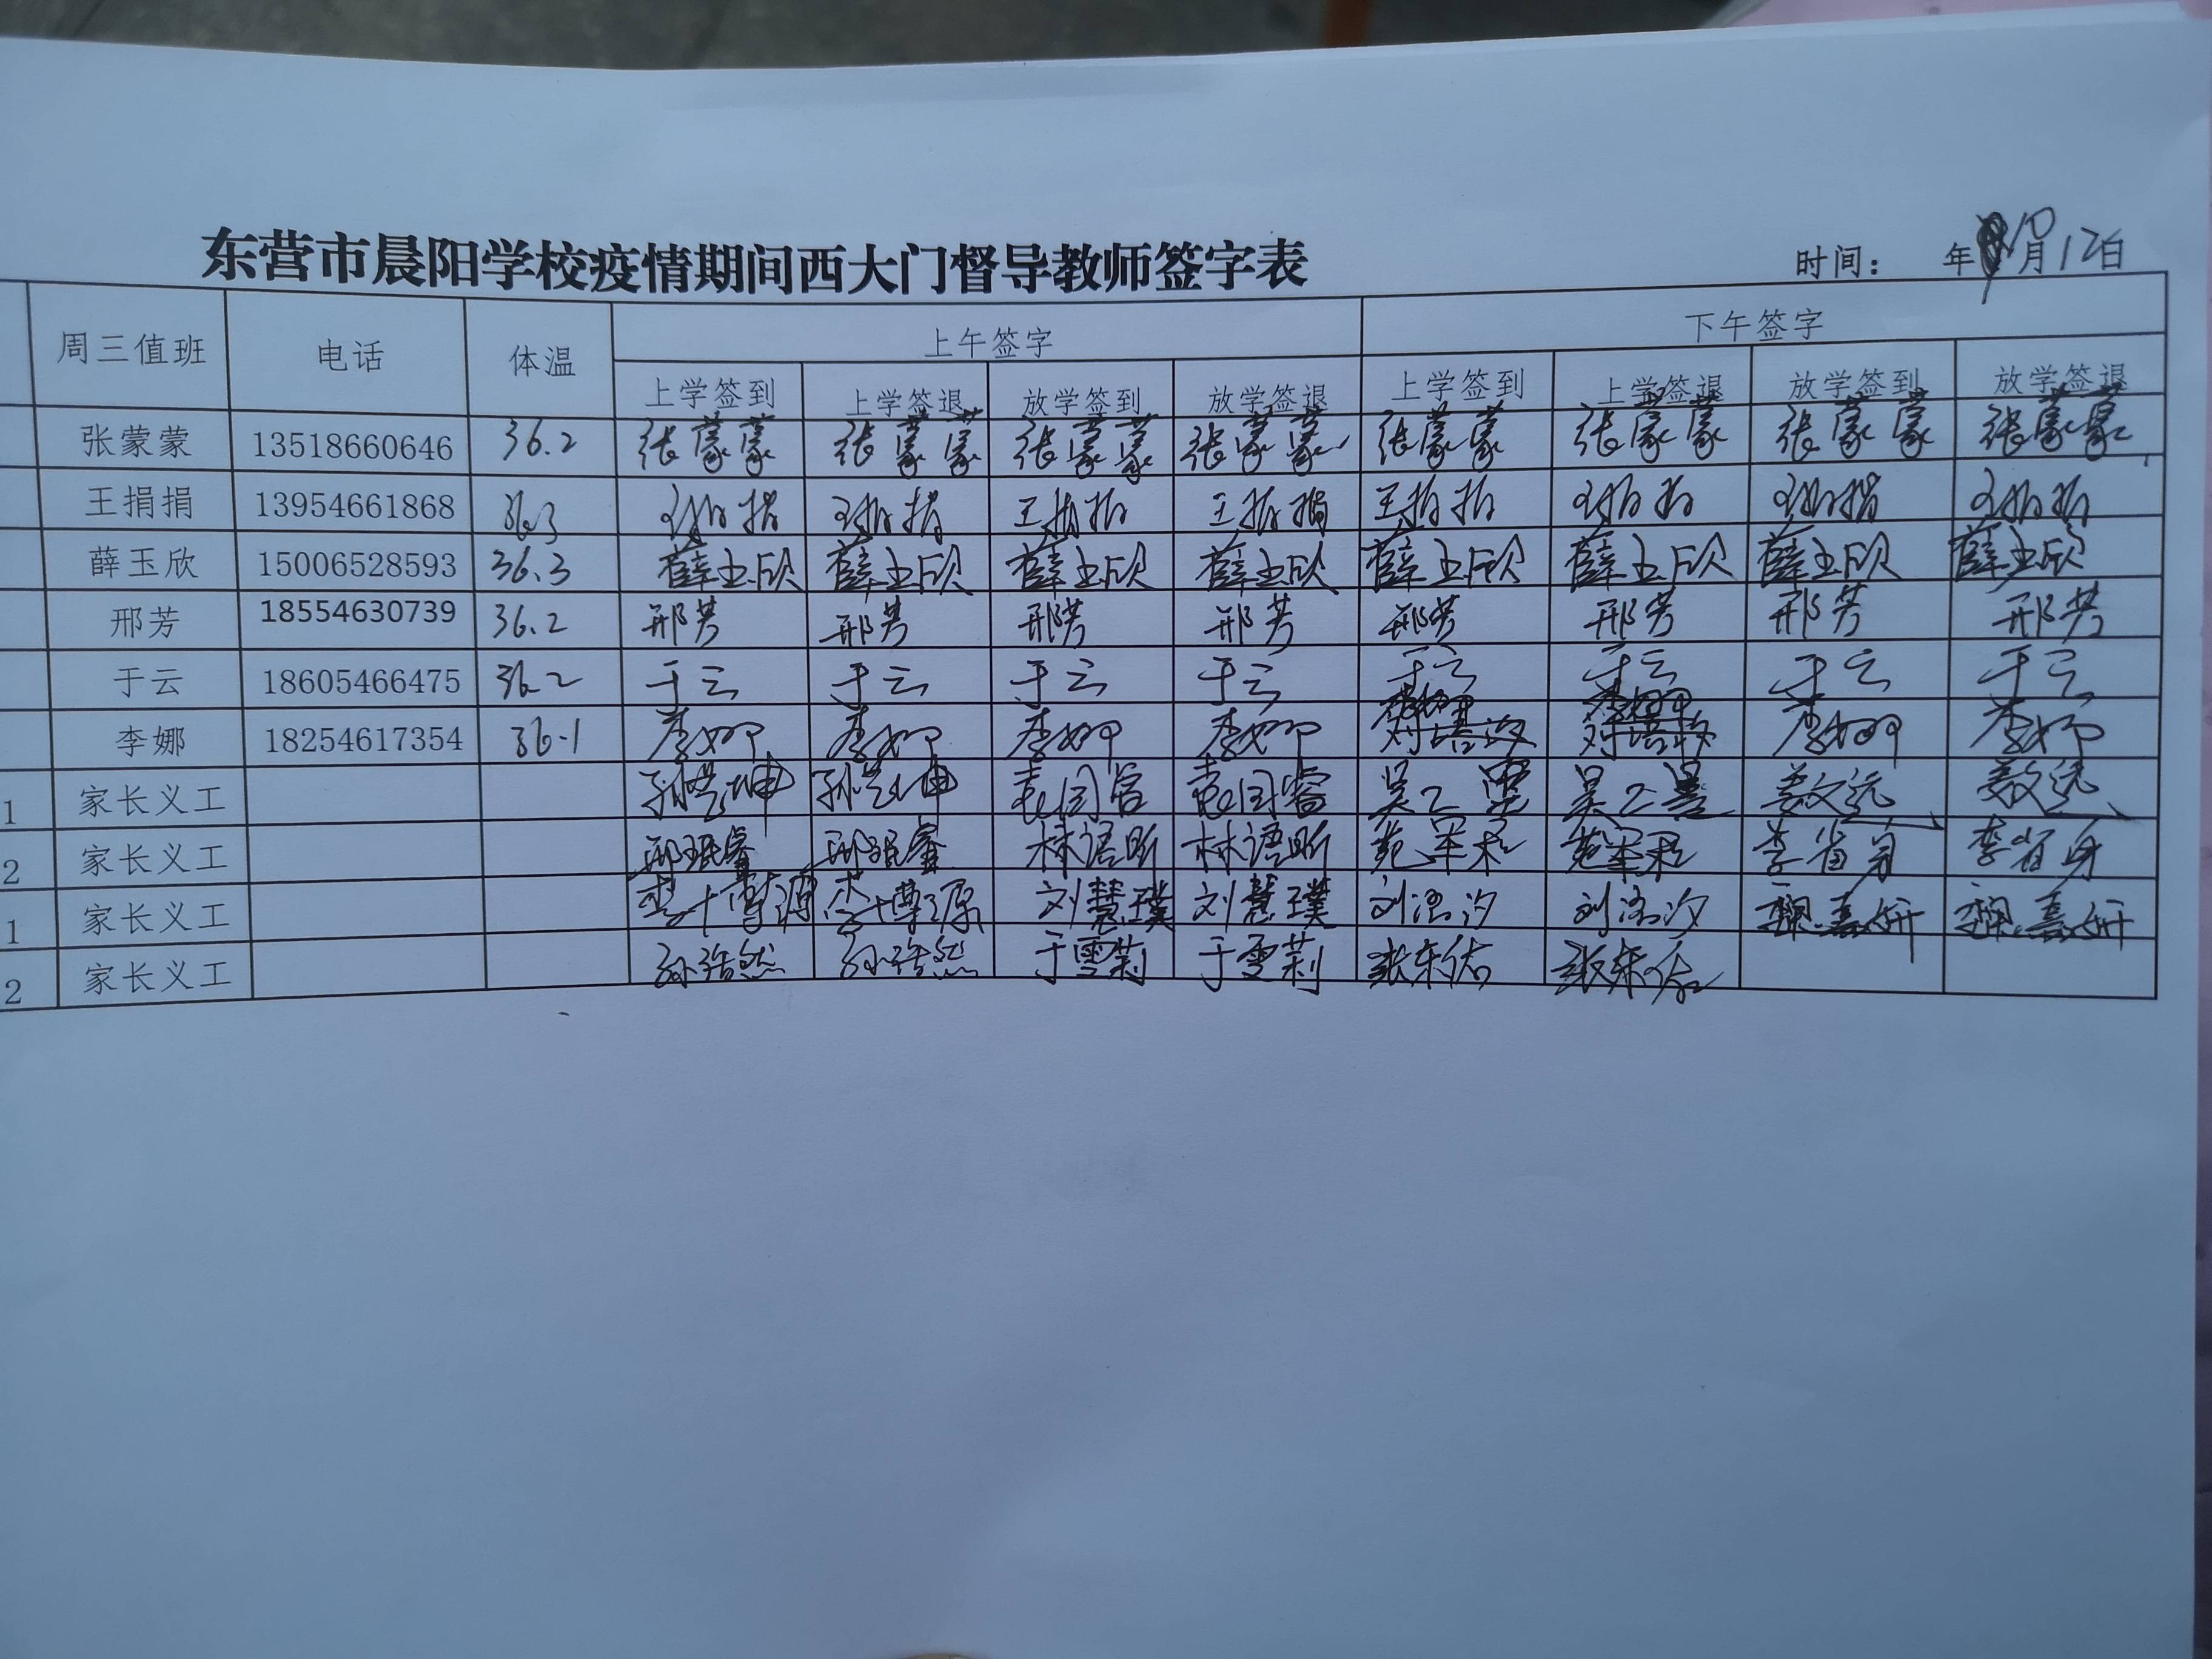 东营市晨阳学校疫情期间西大门督导教师签字表
时间： 年 10月12日
周三值班 电话 体温 上午签字 下午签字
上学签到 上学签退 放学签到 放学签退 上学签到 上学签退 放学签到 放学签退
张蒙蒙 13518660646 36.2 张蒙蒙 张蒙蒙 张蒙蒙 张蒙蒙 张蒙蒙 张蒙蒙 张蒙蒙 张蒙蒙
王捐捐 13954661868 36.3 王捐捐 王捐捐 王捐捐 王捐捐 王捐捐 王捐捐 王捐捐 王捐捐
薛玉欣 15006528593 36.3 薛玉欣 薛玉欣 薛玉欣 薛玉欣 薛玉欣 薛玉欣 薛玉欣 薛玉欣
邢芳 18554630739 36.2 邢芳 邢芳 邢芳 邢芳 邢芳 邢芳 邢芳 邢芳
于云 18605466475 36.2 于云 于云 于云 于云 于云 于云 于云 于云
李娜 18254617354 36.1 李娜 李娜 李娜 李娜 李娜 李娜 李娜 李娜
1 家长义工
2 家长义工 林语昕 林语昕 李省身 李省身
1 家长义工 李博源 李博源 刘慧璞 刘慧璞
2 家长义工 孙浩然 孙浩然 于雪莉 于雪莉 张东佑 张东佑